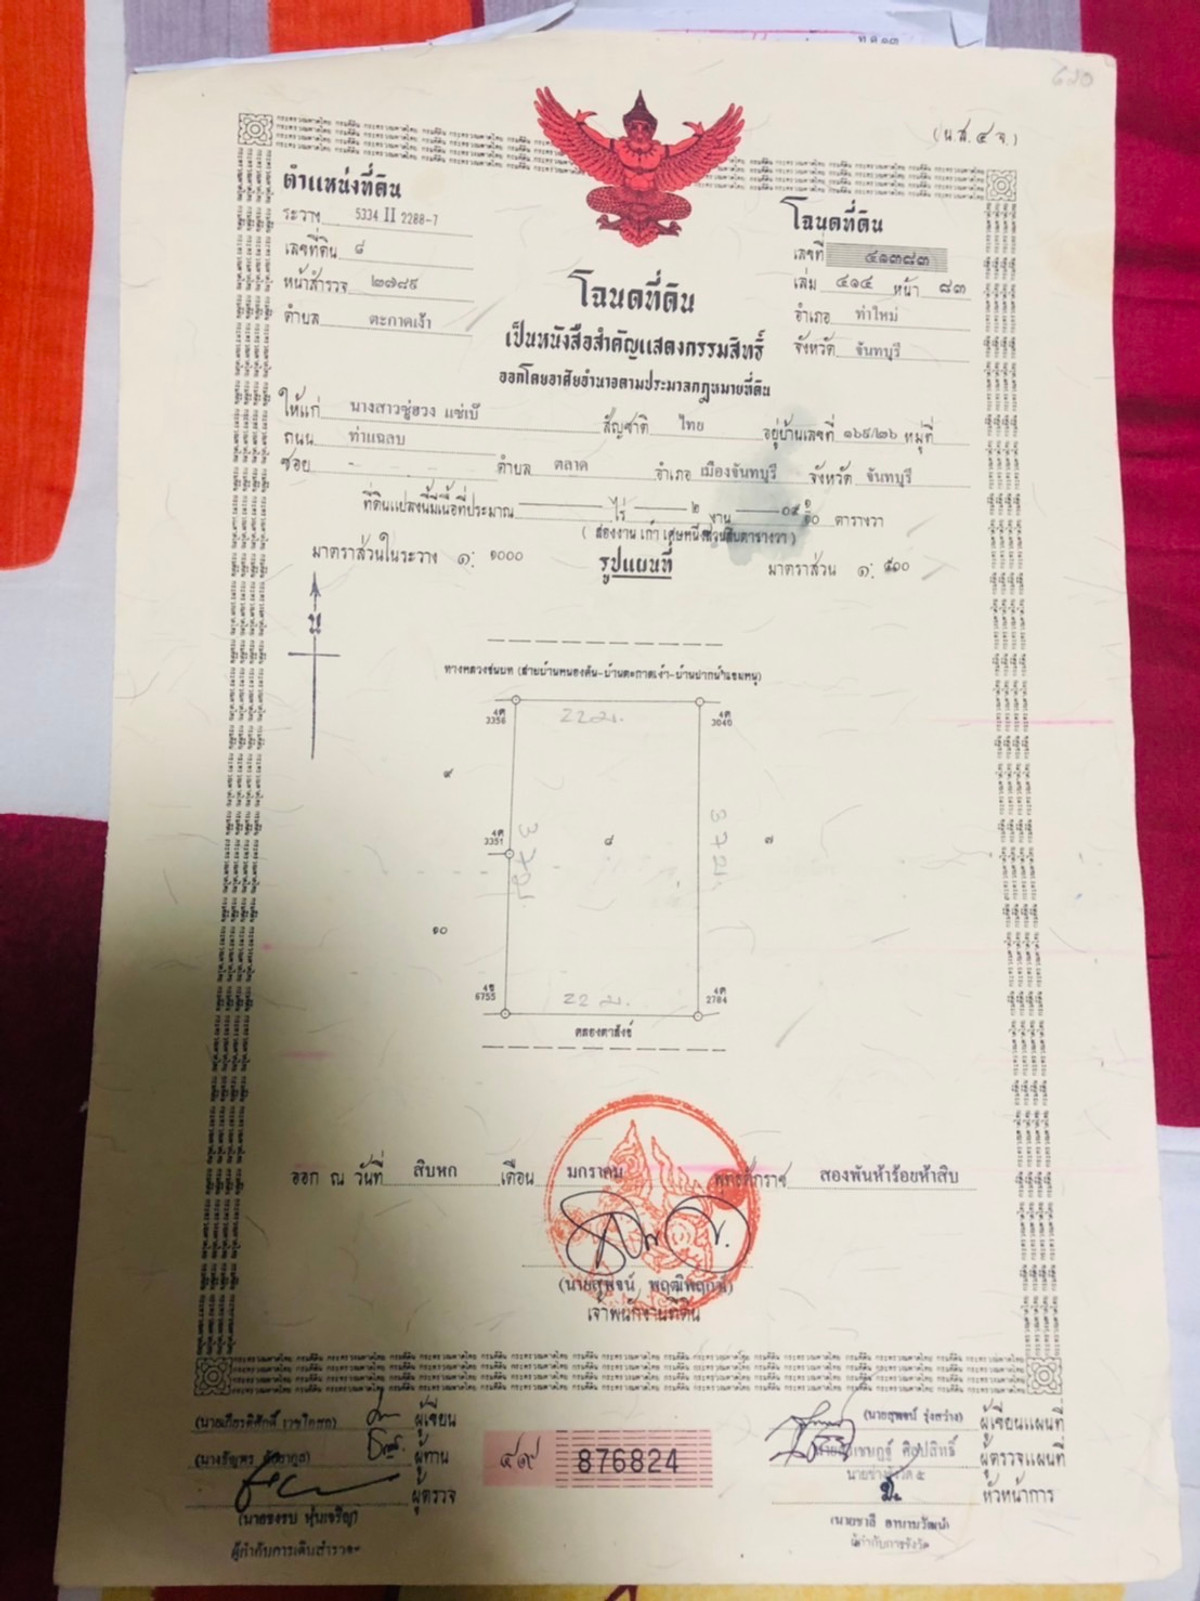 (น.ส. ๔ จ.)
ตำแหน่งที่ดิน
ระวาง 5334 II 2288-7
เลขที่ดิน ๘
หน้าสำรวจ ๒๗๘๙
ตำบล ตะกาดเง้า
โฉนดที่ดิน
เลขที่ ๔๑๓๘๓
เล่ม ๔๑๔ หน้า ๘๓
อำเภอ ท่าใหม่
จังหวัด จันทบุรี
โฉนดที่ดิน
เป็นหนังสือสำคัญแสดงกรรมสิทธิ์
ออกโดยอาศัยอำนาจตามประมวลกฎหมายที่ดิน
ให้แก่ นางสาวซู่ฮวง แซ่เบ๊ สัญชาติ ไทย อยู่บ้านเลขที่ ๑๖๙/๒๖ หมู่ที่
ถนน ท่าแฉลบ
ซอย - ตำบล ตลาด อำเภอ เมืองจันทบุรี จังหวัด จันทบุรี
ที่ดินแปลงนี้มีเนื้อที่ประมาณ ไร่ ๒ งาน ๐๙ ๑/๑๐ ตารางวา
(สองงาน เก้า เศษหนึ่งส่วนสิบตารางวา)
มาตราส่วนในระวาง ๑: ๑๐๐๐ รูปแผนที่ มาตราส่วน ๑: ๕๐๐
น
ทางหลวงชนบท (สายบ้านหนองคัน-บ้านตะกาดเง้า-บ้านปากน้ำแขมหนู)
4ค 3358
22 ม.
4ค 3040
๙
4ค 3351
37 ม.
๘
37 ม.
๗
๑๐
4ข 6755
22 ม.
4ค 2784
คลองตาสังข์
ออก ณ วันที่ สิบหก เดือน มกราคม พุทธศักราช สองพันห้าร้อยห้าสิบ
(นายสุพจน์ พฤฒิพฤกษ์)
เจ้าพนักงานที่ดิน
ผู้เขียน
ผู้ทาน
ผู้ตรวจ
ผู้กำกับการเดินสำรวจฯ
๕๙ 876824
(นายสุพจน์ รุ่งสว่าง) ผู้เขียนแผนที่
ศิลปสิทธิ์ ผู้ตรวจแผนที่
นายช่างรังวัด ๕
หัวหน้าการ
ผู้กำกับการรังวัด